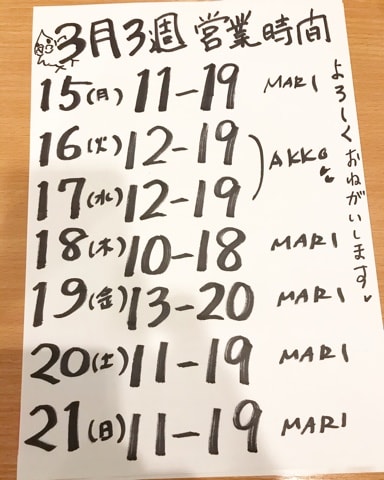 3月3週 営業時間
15(月) 11-19 MARI
16(火) 12-19 AKKO
17(水) 12-19
18(木) 10-18 MARI
19(金) 13-20 MARI
20(土) 11-19 MARI
21(日) 11-19 MARI
よろしくおねがいします